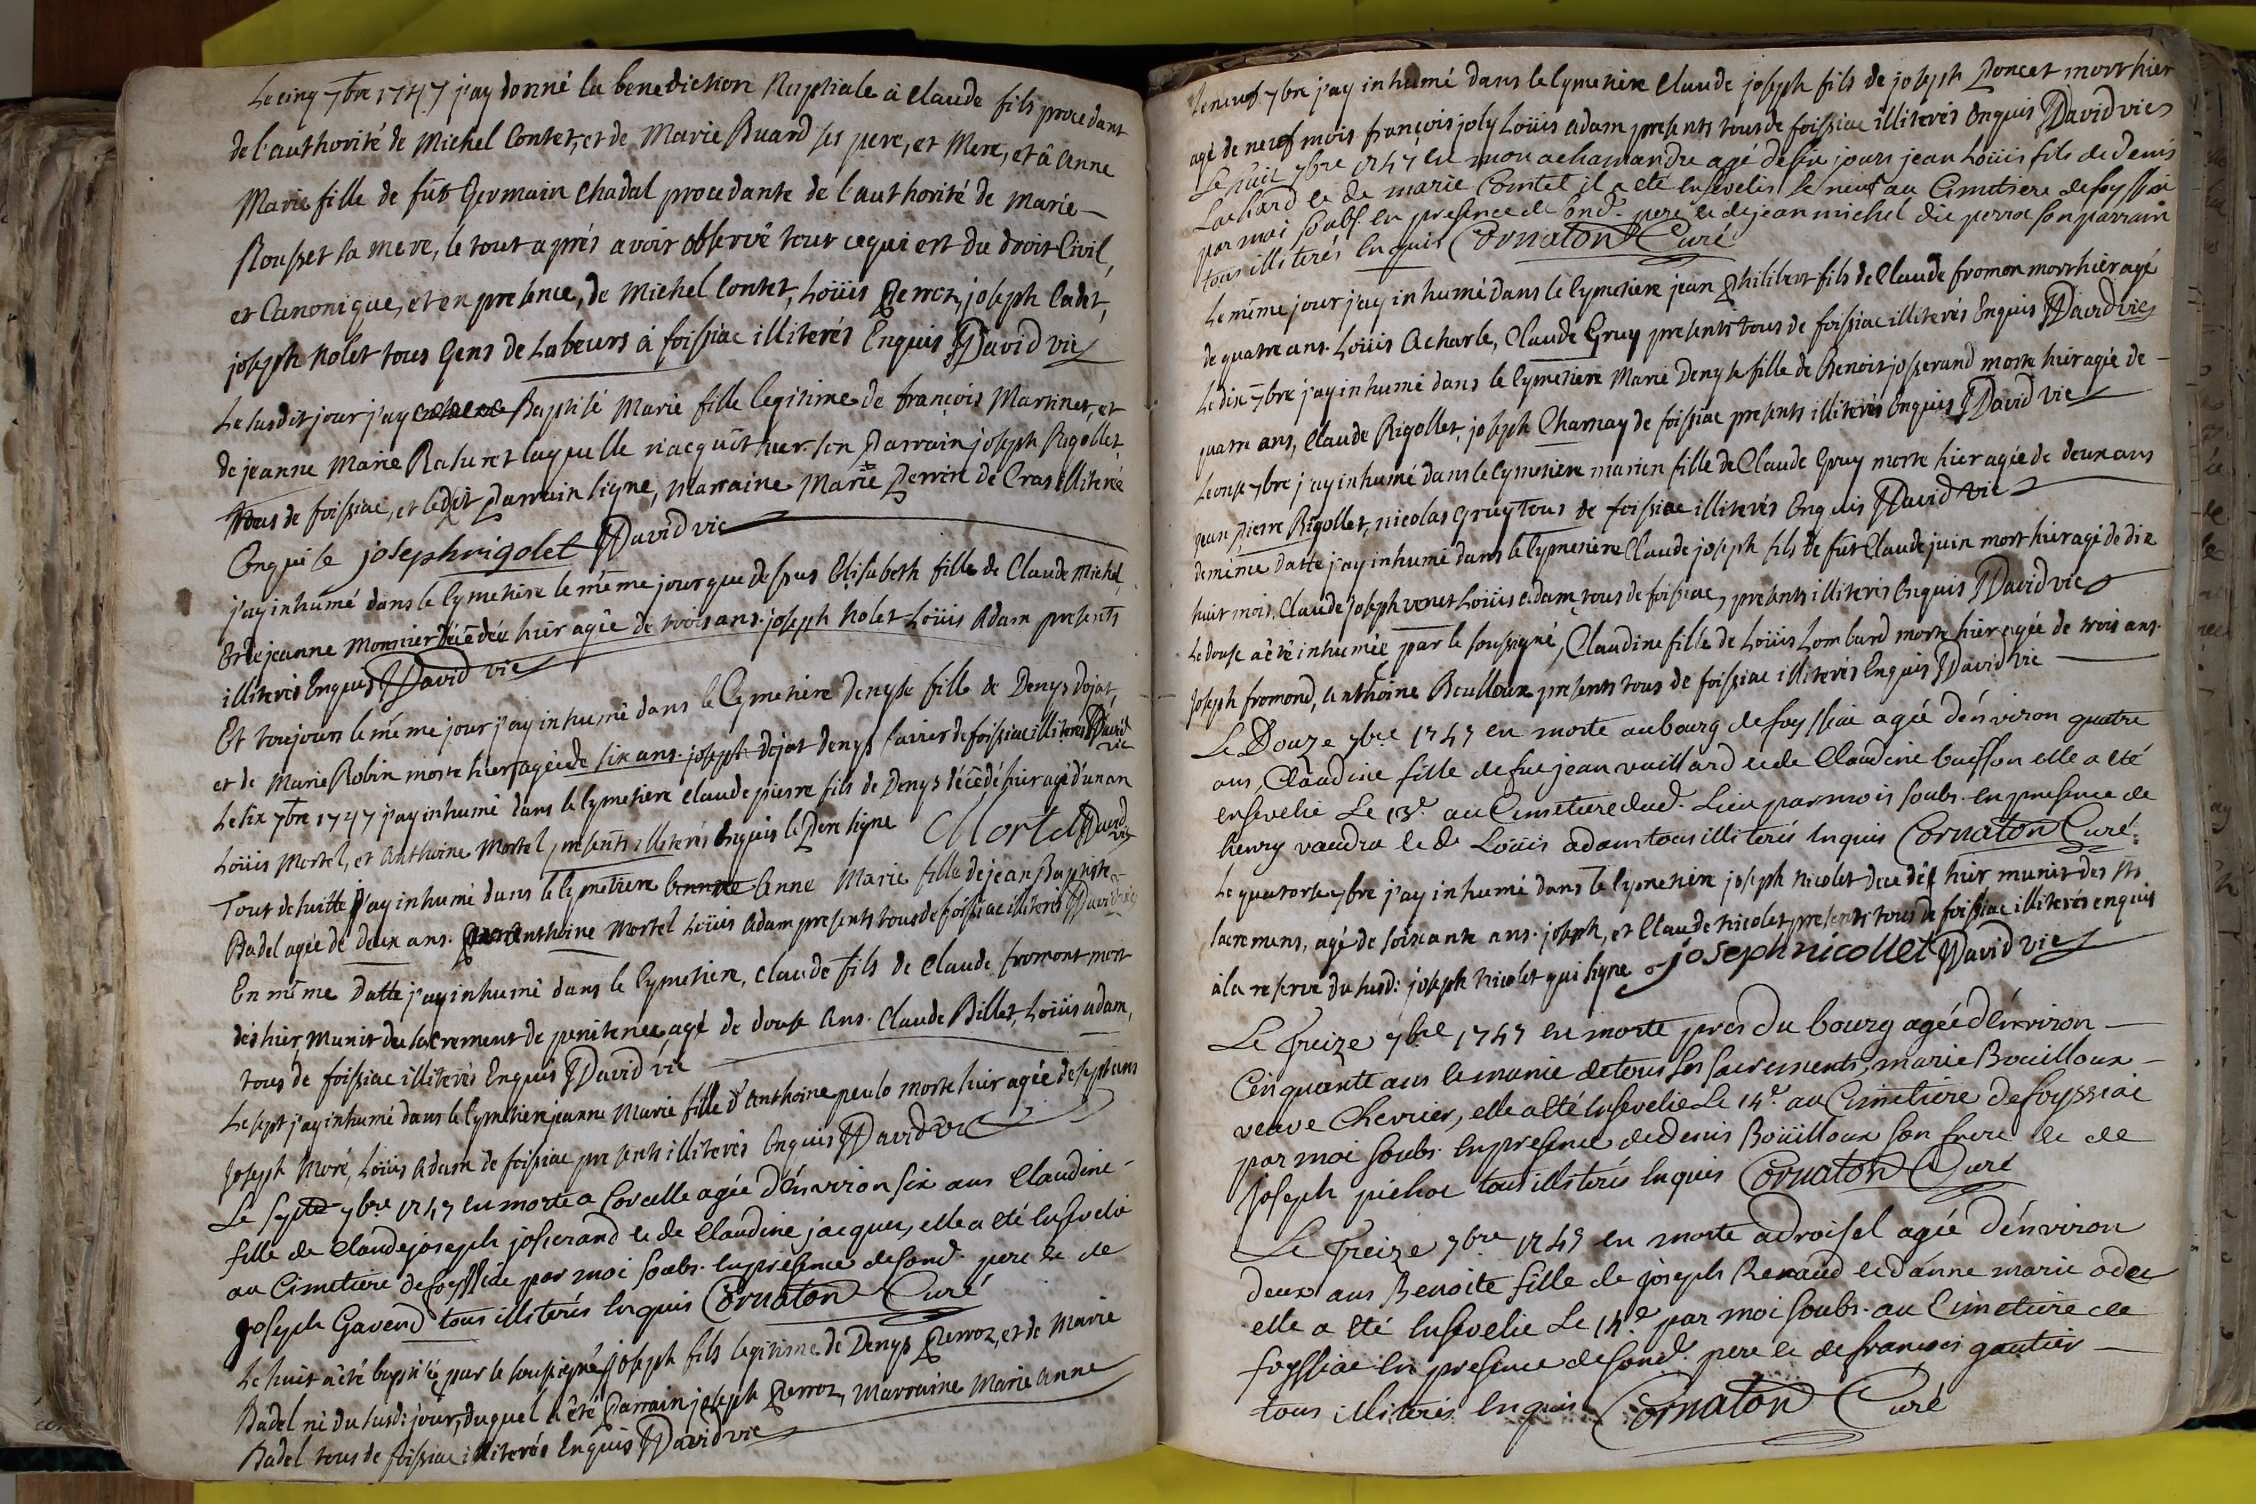 Le cinq 7bre 1747 j'ay donné la benediction Nuptiale à Claude fils procedant
de l'authorité de Michel Contet, et de Marie Buard ses pere, et Mere, et à Anne
Marie fille de fût Germain Chadal procedante de l'authorité de Marie
Rousset sa mere, le tout aprés avoir observé tout ce qui est du droit Civil,
et Canonique, et en presence, de Michel Contet, Loüis Perroz, joseph Cadet,
joseph Nolet tous Gens de Labeurs à foissiac illiterés Enquis David vic
Le susdit jour j'ay Baptisé Marie fille legitime de françois Martinet, et
de jeanne Marie Rasuret laquelle nacquît hier. son Parrain joseph Rigollet,
tous de foissiac, et ledit Parrain signe, Marraine Marie Perrin de Cras illiteré
Enquise josephrigolet David vic
j'ay inhumé dans le Cymetiere le même jour que dessus Elisabeth fille de Claude Michel,
et de jeanne Monnier décédée hier agée de trois ans. joseph Nolet Loüis Adam presents
illiterés Enquis David vic
Et toujours le même jour j'ay inhumé dans le Cymetiere denyse fille de Denys dojat,
et de Marie Robin morte hier agée de six ans. joseph dojat denys de foissiac illiterés David vic
Le six 7bre 1747 j'ay inhumé dans le Cymetiere Claude pierre fils de Denys décédé hier agé d'un an
Loüis Mortel, et Anthoine Mortel presents illiterés Enquis le Pere signe Mortel David vic
Tout desuitte j'ay inhumé dans le Cymetiere Anne Marie fille de jean Baptiste
Badel agée de deux ans. Anthoine Mortel Loüis Adam presents tous de foissiac illiterés David vic
En même datte j'ay inhumé dans le Cymetiere, Claude fils de Claude fromont mort
dés hier, Munit du sacrement de penitence, agé de douse ans. Claude Billet, Loüis adam,
tous de foissiac illiterés Enquis David vic
Le sept j'ay inhumé dans le Cymetiere jeanne Marie fille d'Anthoine peulo morte hier agée de sept ans
Joseph Moré, Loüis Adam de foissiac presents illiterés Enquis David vic
Le Sept 7bre 1747 en morte a Corcelle agée d'énviron six ans Claudine
fille de Claude joseph josserand et de Claudine jacquer, elle a eté Ensevelie
au Cimetiere de foyssiac par moi soubs. en présence de sond. pere et de
joseph Gavend tous illiterés Enquis Cornaton Curé
Le huit a été baptisé par le soussigné joseph fils legitime de Denys Perroz, et de Marie
Badel né du susd: jour, duquel a été Parrain joseph Perroz, Marraine Marie anne
Badel tous de foissiac illiterés Enquis David vic
Le neuf 7bre j'ay inhumé dans le Cymetiere Claude joseph fils de joseph Poncet mort hier
agé de neuf mois françois joly Loüis adam presents tous de foissiac illiterés Enquis David vic
Le huit 7bre 1747 en mort a chamandre agé de six jours jean Loüis fils de denis
Lachard et de marie Contet il a eté Ensevelis le neuf au Cimetiere de foyssia
par moi soubs. en presence de sond. pere et de jean michel die perroz son parrain
tous illiterés Enquis Cornaton Curé
Le même jour j'ay inhumé dans le Cymetiere jean Philibert fils de Claude fromon mort hier agé
de quatre ans. Loüis Acharle, Claude Gruy presents tous de foissiac illiterés Enquis David vic
Le dix 7bre j'ay inhumé dans le Cymetiere Marie Denyse fille de Benoit josserand morte hier agée de
quatre ans, Claude Rigollet, joseph Charnay de foissiac presents illiterés Enquis David vic
Le onse 7bre j'ay inhumé dans le Cymetiere marien fille de Claude Gruy morte hier agée de deux ans
jean pierre Rigollet, nicolas Gruy tous de foissiac illiterés Enquis David vic
de même datte j'ay inhumé dans le Cymetiere Claude joseph fils de fût Claude juin mort hier agé de dix
huit mois. Claude joseph venet Loüis adam tous de foissiac, presents illiterés Enquis David vic
Le douse a été inhumée par le soussigné, Claudine fille de Loüis Lombard morte hier agée de trois ans.
Joseph fromond, Anthoine Boulloux presents tous de foissiac illiterés Enquis David vic
Le Douze 7bre 1747 en morte au bourg de foyssiac agée dénviron quatre
ans, Claudine fille de fue jean vuillard et de Claudine buisson elle a eté
ensevelie Le 13e au Cimetiere dud. Lieu par moi soubs. en presence de
henry vaudra et de Loüis adam tous illiterés Enquis Cornaton Curé.
Le quatorse 7bre j'ay inhumé dans le Cymetiere joseph Nicolet decedé hier munit des Sts
sacremens, agé de soixante ans. joseph, et Claude Nicolet presents tous de foissiac illiterés enquis
à la reserve du susd: joseph Nicolet qui signe josephnicollet David vic
Le Treize 7bre 1747 en morte pres du bourg agée d'énviron
Cinquante ans et munie de tous les sacrements, marie Boüilloux
veuve Chevrier, elle a eté Ensevelie Le 14e au Cimetiere de foyssiac
par moi soubs. en presence de denis Boüilloux son frere et de
joseph pichoc tous illiterés Enquis Cornaton Curé
Le Treize 7bre 1747 en morte a droisel agée d'énviron
deux ans Benoite fille de joseph Renaud et d'anne marie odee
elle a eté Ensevelie Le 14e par moi soubs. au Cimetiere de
foyssiac en presence de sond. pere et de francois gautier
tous illiterés Enquis Cornaton Curé